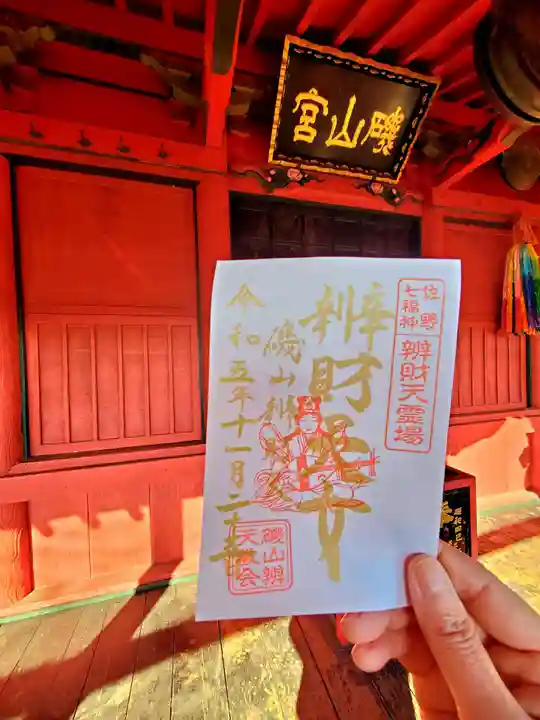 磯山宮
佐野
七福神
辨財天霊場
辨財天
磯山辨財天
令和五年十一月二十
磯山辨
天教会